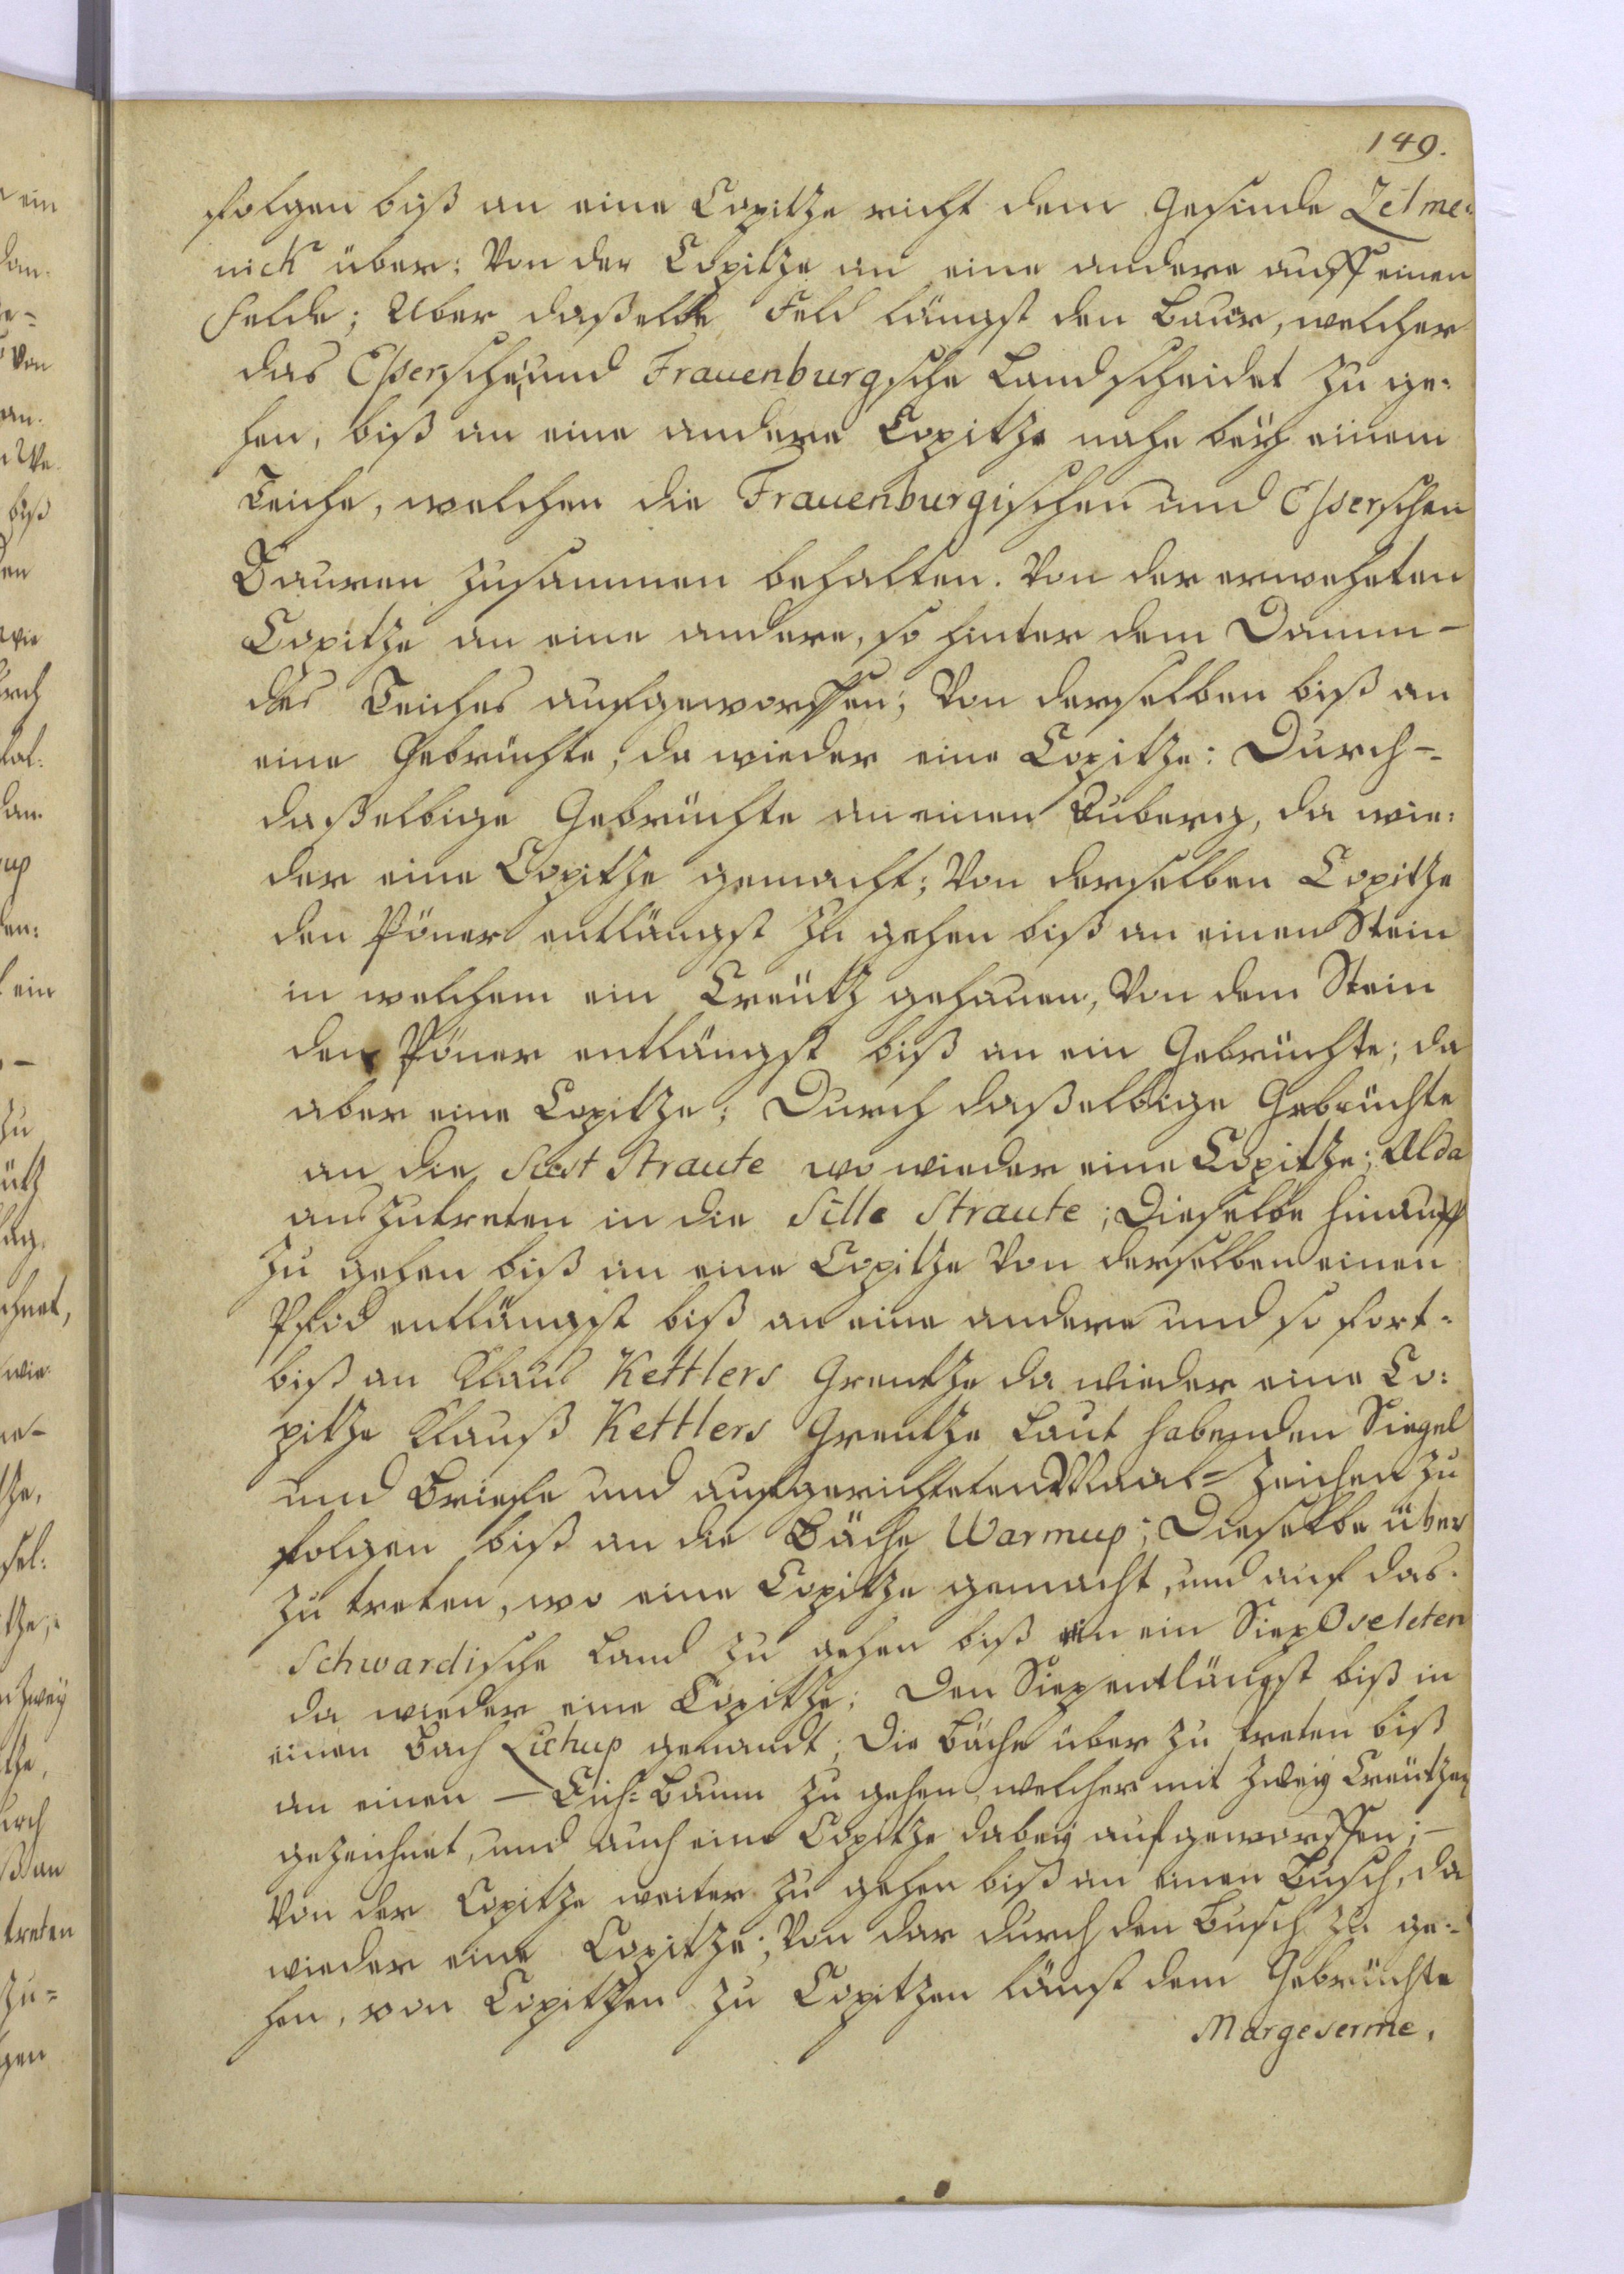 149.
folgen biß an eine Copitze richt dem Gesinde Zelme-
nick über; Von der Copitze an eine andere auff einen
Felde; Uber daßelbe Feld längst den Baur, welcher
das Eßersche, und Frauenburgsche Land scheidet zu ge:
hen, biß an eine andere Copitze nahe beÿ einem
Teiche, welchen die Frauenburgischen und Eßerschen
Bauren zusammen behalten. Von der erwehnten
Copitze an eine andere, so hinter dem Damm-
des Teiches aufgeworffen; Von derselben biß an
eine Gebrüchte, da wieder eine Copitze: Durch-
daßelbige Gebrüchte an einen Auberg, da wie:
der eine Copitze gemacht; Von derselben Copitze
den Pöner entlängst zu gehen biß an einen Stein
in welchem ein Creütz gehauen, Von dem Stein
den Pöner entlängst biß an ein Gebrüchte; da
aber eine Copitze; Durch daßelbige Gebrüchte
an die Sust Straute wo wieder eine Copitze; Alda
auszutreten in die Sille Straute; Dieselbe hinauff
zu gehen biß an eine Copitze Von derselben einen
Pfad entlängst biß an eine andere und so fort-
biß an Klaus Kettlers Grentze da wieder eine Co:
pitze Klauß Kettlers Grentze Laut habenden Siegel
und Briefe und aufgerichteten Maal-Zeichen zu
folgen biß an die Bäche Warmup; Dieselbe über
zu treten, wo eine Copitze gemacht, und auf das
Schwardische Land zu gehen biß an ein Siep Oseleten
da wieder eine Copitze; Den Siep entlängst biß in
einen Bach Lichup genandt; Die Bäche über zu treten biß
an einen - Eich-Baum zu gehen, welcher mit zweÿ Creützen
gezeichnet, und auch eine Copitze dabeÿ aufgeworffen;-
Von der Copitze weiter zu gehen biß an einen Busch, da
wieder eine Copitze; Von dar durch den Busch zu ge-
hen, von Copitzen zu Copitzen länst dem Gebrüchte
Margeserme,